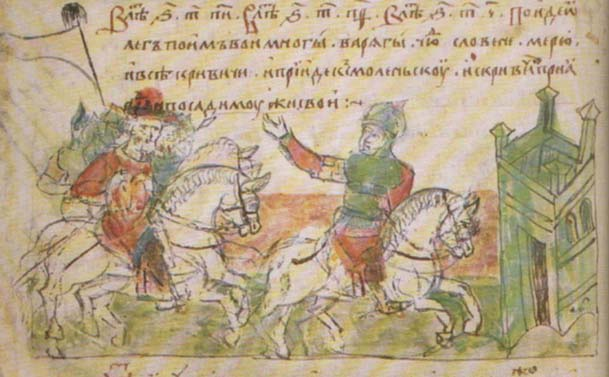 Влѣт ѕ҃ т пи Влѣт ѕ҃ т пѳ Влѣт ѕ҃ т ч Поиде ѡ
легъ поимъ вои многы . варягы . чю словене . мерю
ивсѣ кривичи . иприиде к смоленьскоу . искривичи приа
ипосади моужи свои :~